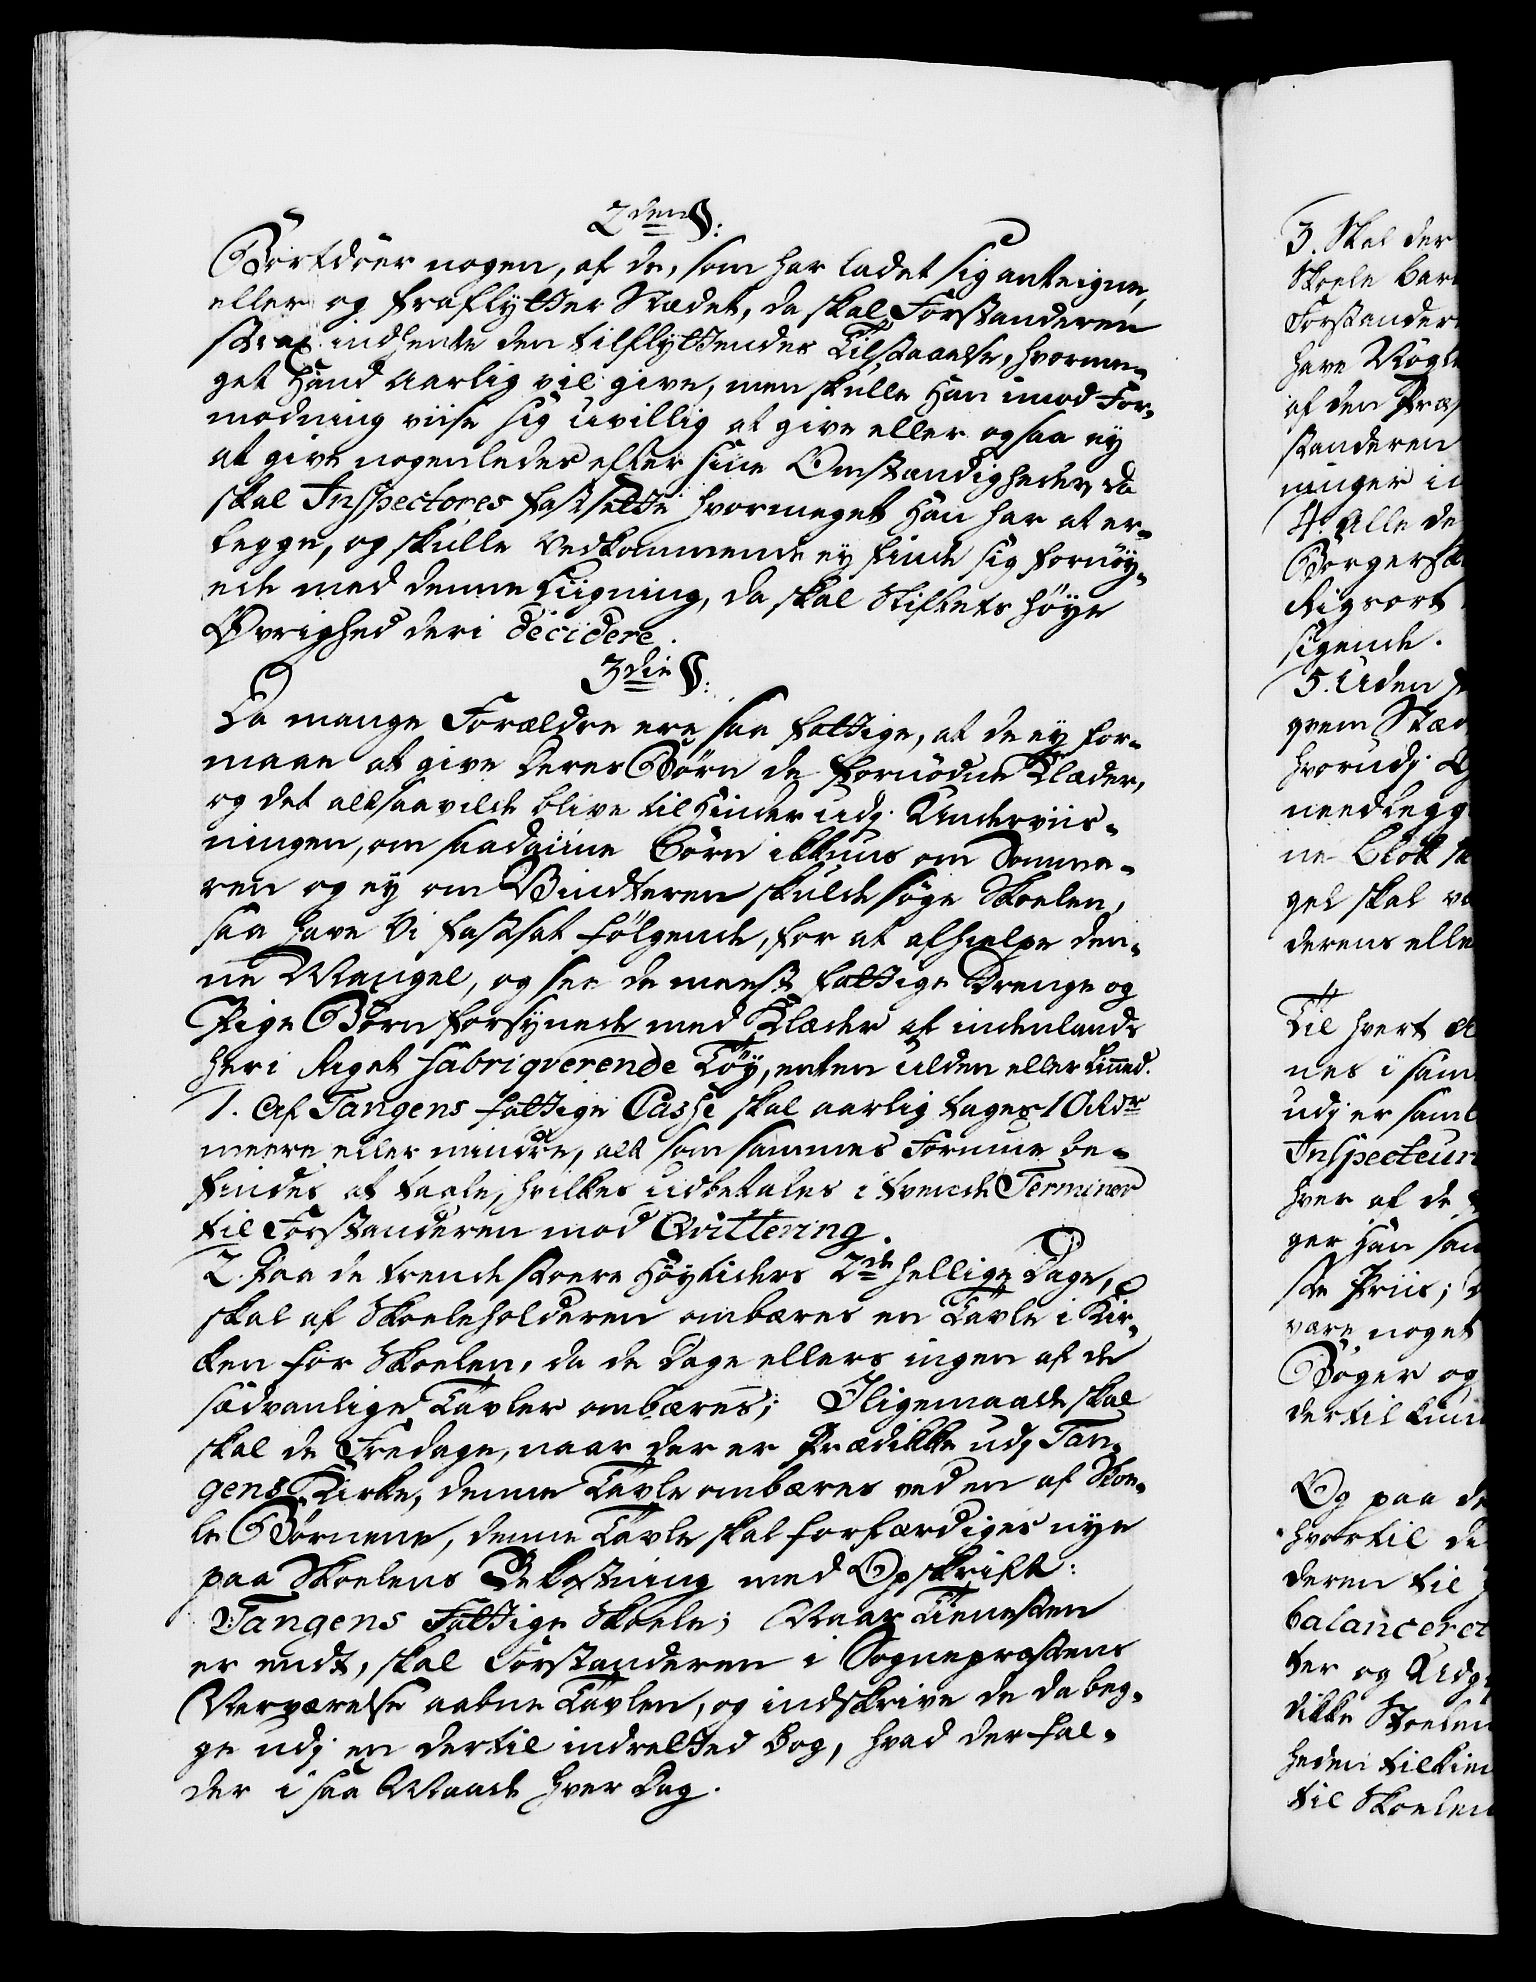 2den §:
Bortdöer nogen, af de, som har ladet sig anteigne,
eller og fraflytter Stædet, da skal Forstanderen
strax indhente den tilflyttendes Tilstaaelse, hvorme-
get Hand Aarlig vil give, men skulle Han imod For-
modning viise sig Uvillig at give eller ogsaa ey
at give nogenledes efter sine Omstændigheder, da
skal Inspectores fastsette hvormeget Han har at er-
legge, og skulle Vedkommende ey finde sig fornöy-
ede med denne Liigning, da skal Stiftets höye
Øvrighed deri decidere.
3die §:
Da mange Forældre ere saa fattige, at de ey for-
maae at give deres Börn de fornödne Klæder,
og det altsaa vilde blive til Hinder udj Underviis-
ningen, om saadanne Börn ikkuns om Somme-
ren og ey om Vindteren skulde söge Skoelen,
saa have Vi fastsat fölgende, for at afhielpe den-
ne Mangel, og see de meest fattige Drenge og
Pige Börn forsynede med Klæder af indenlands
her i Riget fabriqverende Töy, enten ulden eller linned.
1. Af Tangens fattige Casse skal aarlig tages 10 Rdr
meere eller mindre, alt som sammes Formue be-
findes at taale, hvilkes udbetales i tvende Terminer
til Forstanderen mod Qvittering.
2. Paa de trende store Höytiders 2de hellige Dage,
skal af Skoeleholderen ombæres en Tavle i Kir-
ken for Skoelen, da de Dage ellers ingen af de
sædvanlige Tavler ombæres; Iligemaade skal
skal de Fredage, naar der er Prædikke udj Tan-
gens Kirke, denne Tavle ombæres ved en af Skoe-
le Börnene, denne Tavle skal forfærdiges nye
paa Skoelens Bekostning med Opskrift:
Tangens Fattige Skoele; Naar Tienesten
er endt, skal Forstanderen i Sognepræstens
Nærværelse aabne Tavlen, og indskrive de da beg-
ge udj en dertil indretted Bog, hvad der fal-
der i saa Maade hver Dag.
3. Skal der
Skoele
Forstander
have Nögle
af den
standeren
4. Alle de
Borgersk
sigende.
5. Uden
hvorudj
needlegg
ne Blok
gel skal
derens elle
Til hvert
nes i sam
udj er saml
Inspecteur
hver af de
ger Han sam
ste Priis;
være noget
Böger og
dertil
Og paa de
hvortil de
deren til
balanceret
ter og Udg
dikke Skoelen
heden
til Skoelen